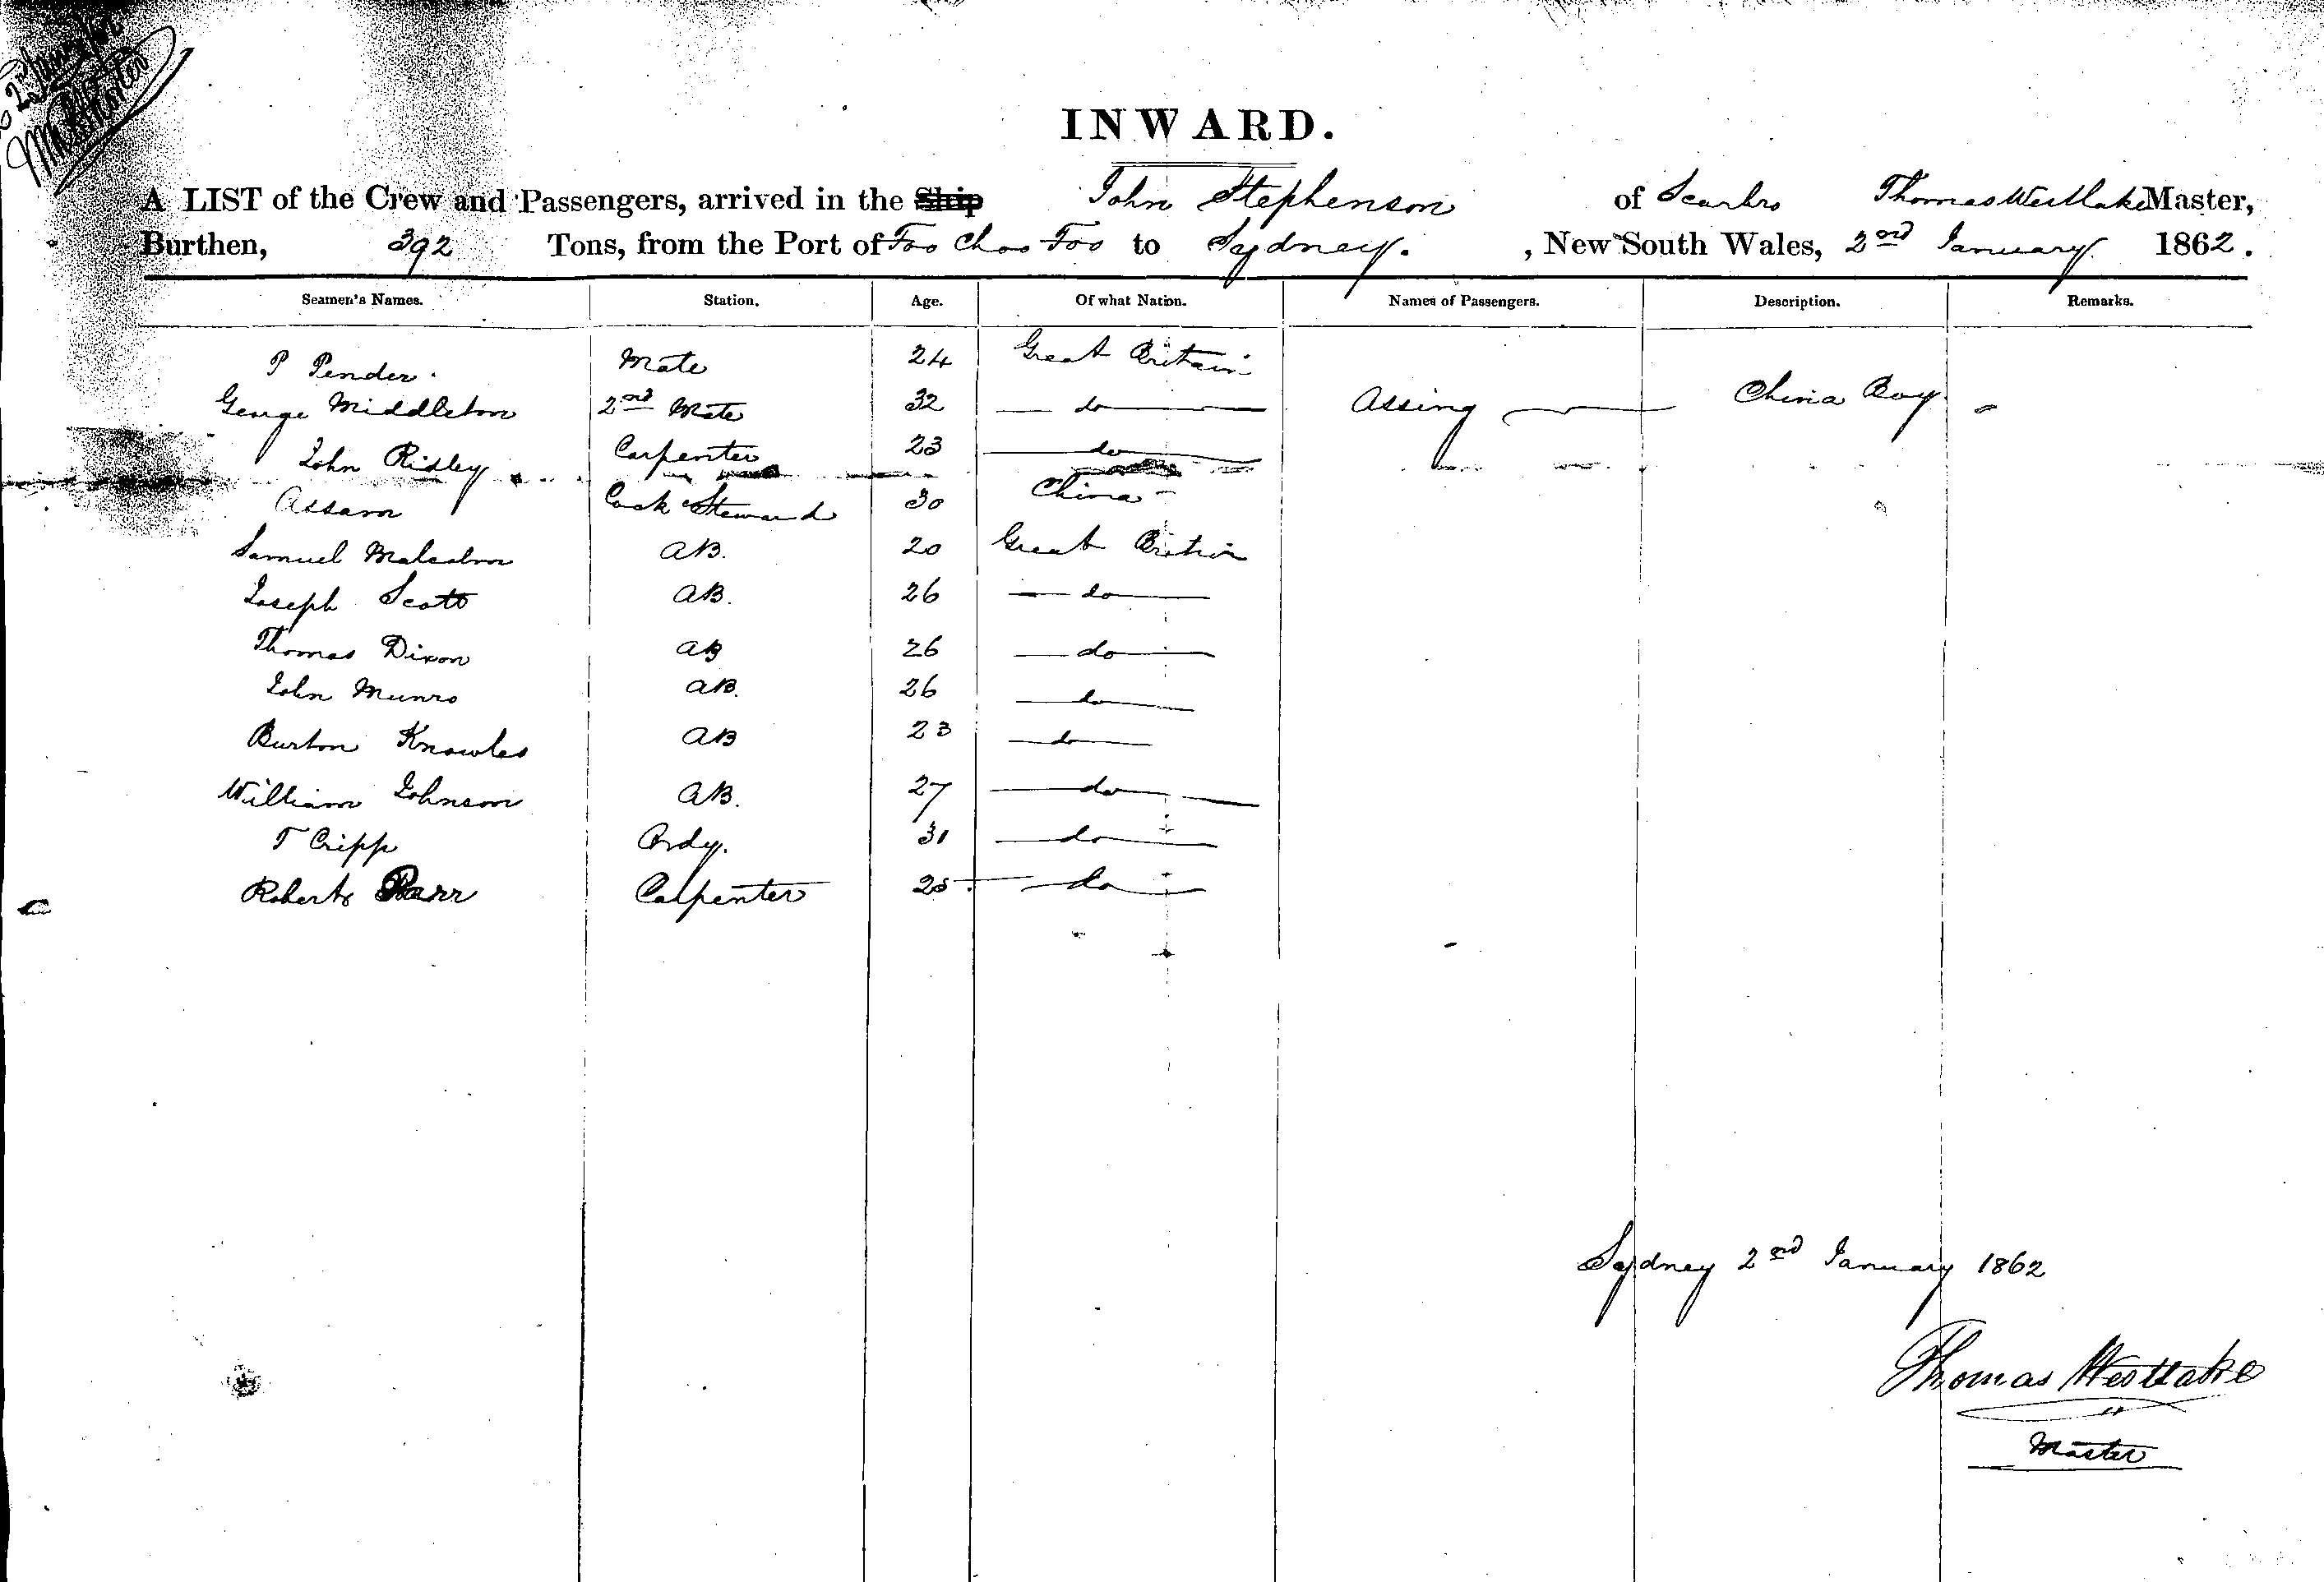 INWARD.
A LIST of the Crew and Passengers, arrived in the Ship John Stephenson of Scarbro Thomas Westlake Master,
Burthen, 392 Tons, from the Port of Foo Choo Foo to Sydney. , New South Wales, 2nd January 1862.
Seamen's Names. Station. Age. Of what Nation. Names of Passengers. Description. Remarks.
P Pender. Mate 24 Great Britain
George Middleton 2nd Mate 32 do Assing China Boy
John Ridley Carpenter 23 do
Assam Cook Steward 30 China
Samuel Malcolm AB. 20 Great Britain
Joseph Scott AB. 26 do
Thomas Dixon AB 26 do
John Munro AB. 26 do
Burton Knowles AB 23 do
William Johnson AB. 27 do
T Cripp Ordy. 31 do
Robert Carpenter 25 do
Sydney 2nd January 1862
Thomas Westlake
Master